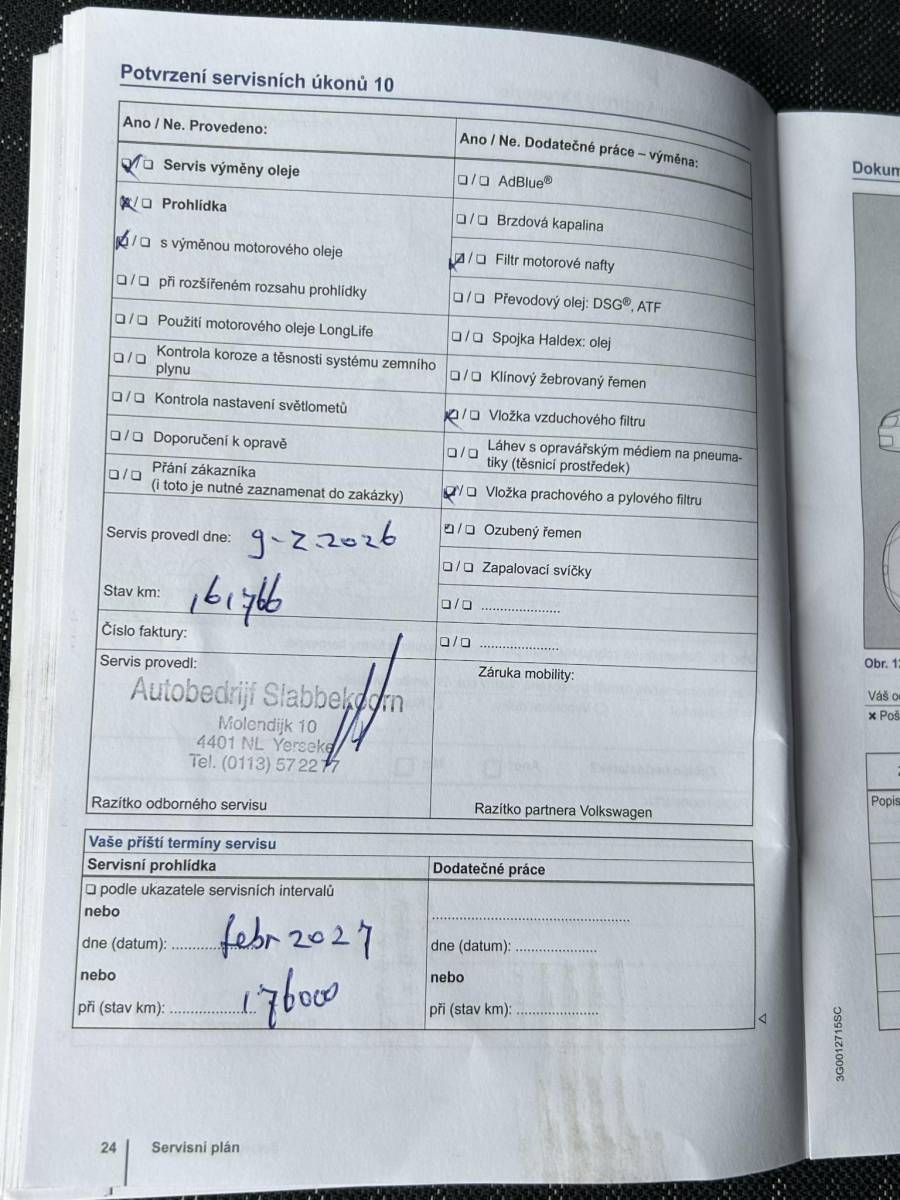 Potvrzení servisních úkonů 10
Ano / Ne. Provedeno:
❑ / ❑ Servis výměny oleje
❑ / ❑ Prohlídka
❑ / ❑ s výměnou motorového oleje
❑ / ❑ při rozšířeném rozsahu prohlídky
❑ / ❑ Použití motorového oleje LongLife
❑ / ❑ Kontrola koroze a těsnosti systému zemního
plynu
❑ / ❑ Kontrola nastavení světlometů
❑ / ❑ Doporučení k opravě
❑ / ❑ Přání zákazníka
(i toto je nutné zaznamenat do zakázky)
Servis provedl dne: 9-2-2026
Stav km: 161766
Číslo faktury:
Servis provedl:
Autobedrijf Slabbekoorn
Molendijk 10
4401 NL Yerseke
Tel. (0113) 57 22 77
Razítko odborného servisu
Ano / Ne. Dodatečné práce – výměna:
❑ / ❑ AdBlue®
❑ / ❑ Brzdová kapalina
❑ / ❑ Filtr motorové nafty
❑ / ❑ Převodový olej: DSG®, ATF
❑ / ❑ Spojka Haldex: olej
❑ / ❑ Klínový žebrovaný řemen
❑ / ❑ Vložka vzduchového filtru
❑ / ❑ Láhev s opravářským médiem na pneuma-
tiky (těsnicí prostředek)
❑ / ❑ Vložka prachového a pylového filtru
❑ / ❑ Ozubený řemen
❑ / ❑ Zapalovací svíčky
❑ / ❑ ......................
❑ / ❑ ......................
Záruka mobility:
Razítko partnera Volkswagen
Vaše příští termíny servisu
Servisní prohlídka
❑ podle ukazatele servisních intervalů
nebo
dne (datum): febr 2027
nebo
při (stav km): 176000
Dodatečné práce
......................................................
dne (datum): ......................
nebo
při (stav km): ......................
24 Servisní plán
Dokum
Obr. 1
Váš o
Poš
Popis
3G0012715SC